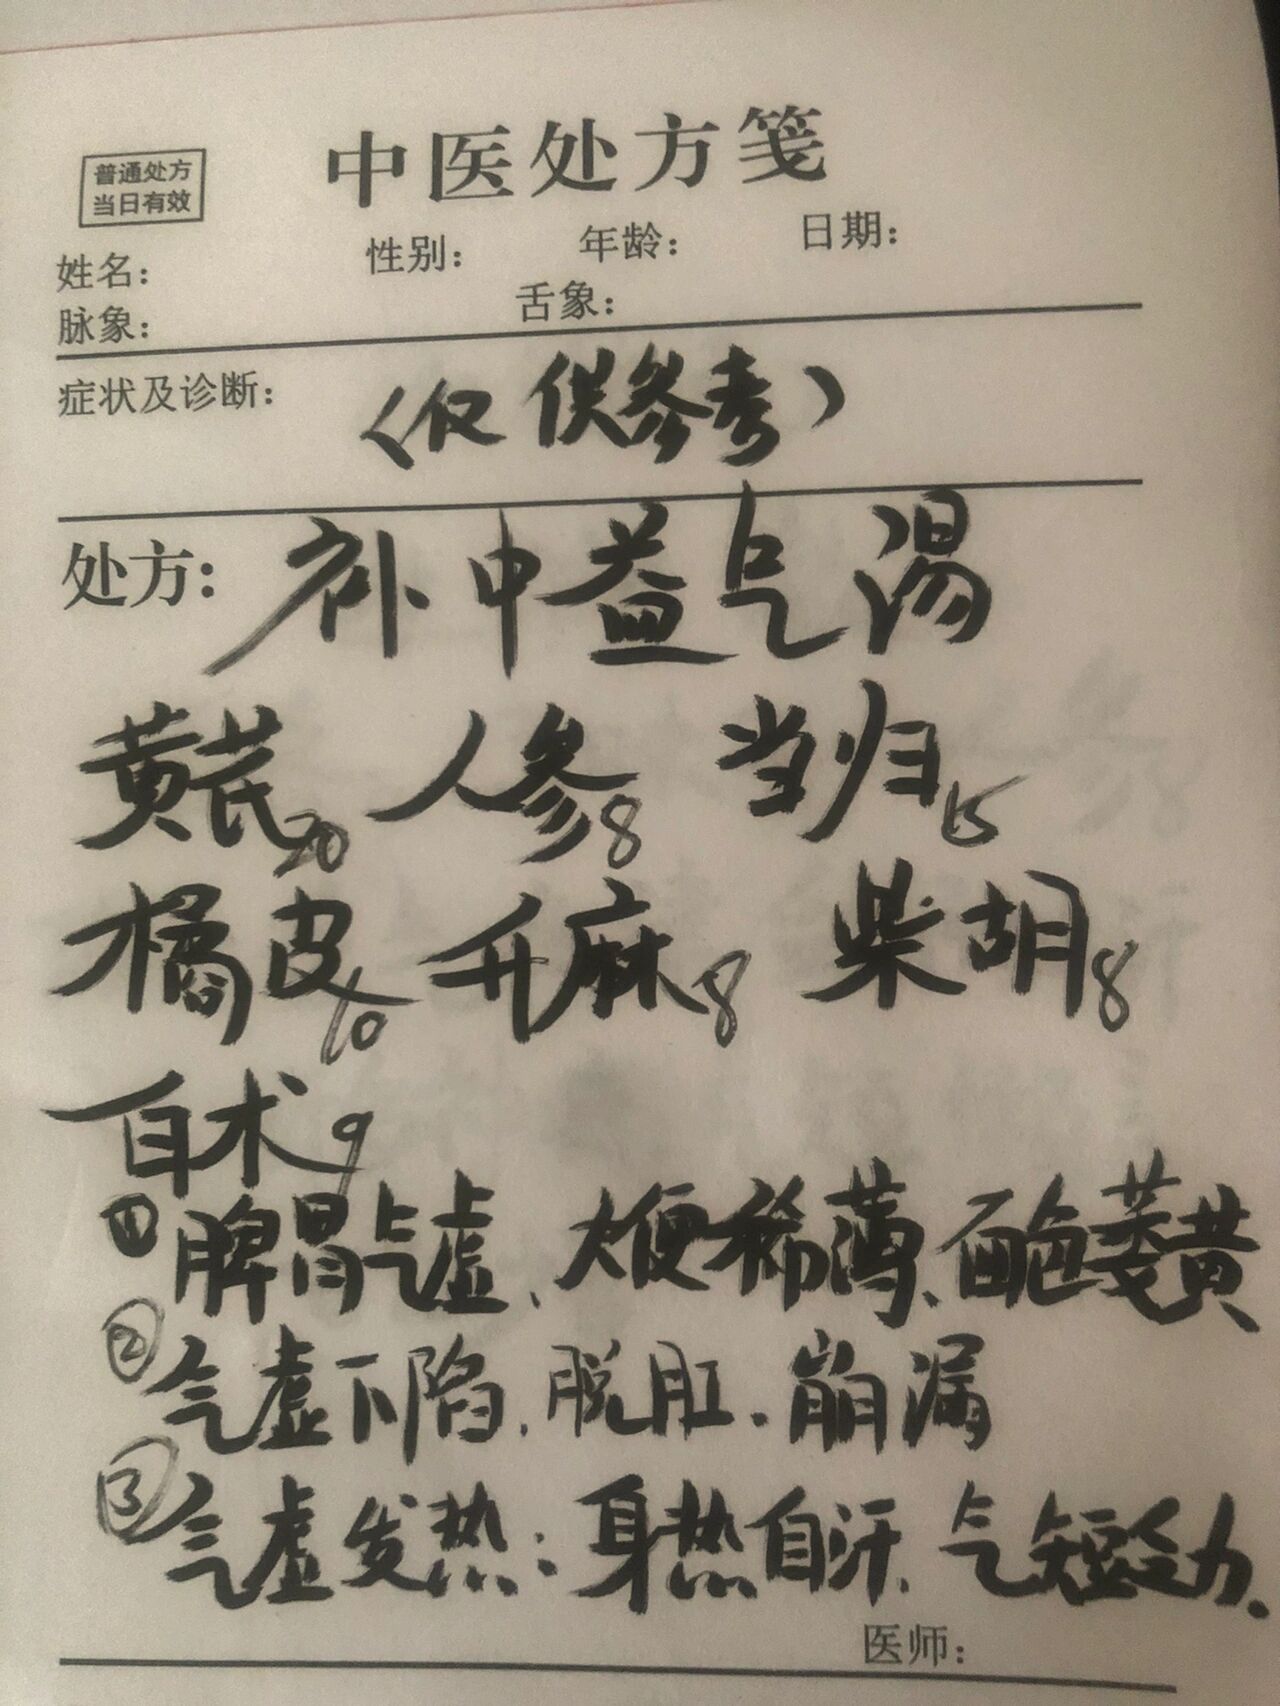 中医处方笺
普通处方
当日有效
姓名： 性别： 年龄： 日期：
脉象： 舌象：
症状及诊断： （仅供参考）
处方： 补中益气汤
黄芪20 人参8 当归15
橘皮10 升麻8 柴胡8
白术9
①脾胃气虚、大便稀薄、面色萎黄
②气虚下陷、脱肛、崩漏
③气虚发热：身热自汗、气短乏力.
医师：